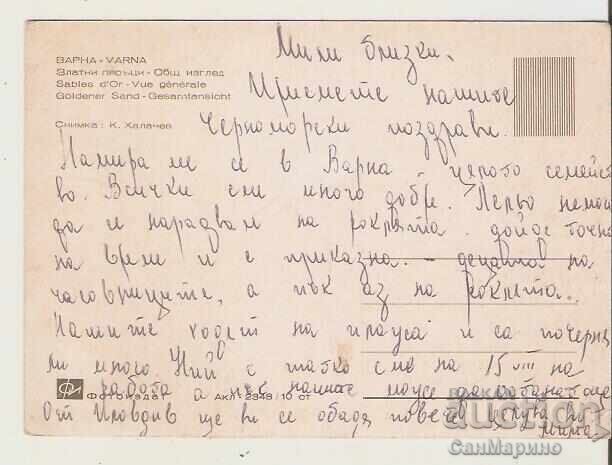 ВАРНА - VARNA
Златни пясъци - Общ изглед
Sables d'Or - Vue générale
Goldener Sand - Gesamtansicht
Снимка: К. Халачев
Мили близки,
Приемете нашите
Черноморски поздрави.
Намираме се в Варна цялото семейст
во. Всички сме много добре. Лельо немога
да и нарадвам на роклята. дойде точно
на време и е приказна. - децата на
часовниците, а пък аз на роклята.
ходят на плаца и са почерне
ли много. Ний с татко сме на 15 VIII на
работа а те
Фотоиздат АКЛ 2349/10 ст
От Пловдив ще ви се обадя повече целува ви
Мита
auction
СанМарино